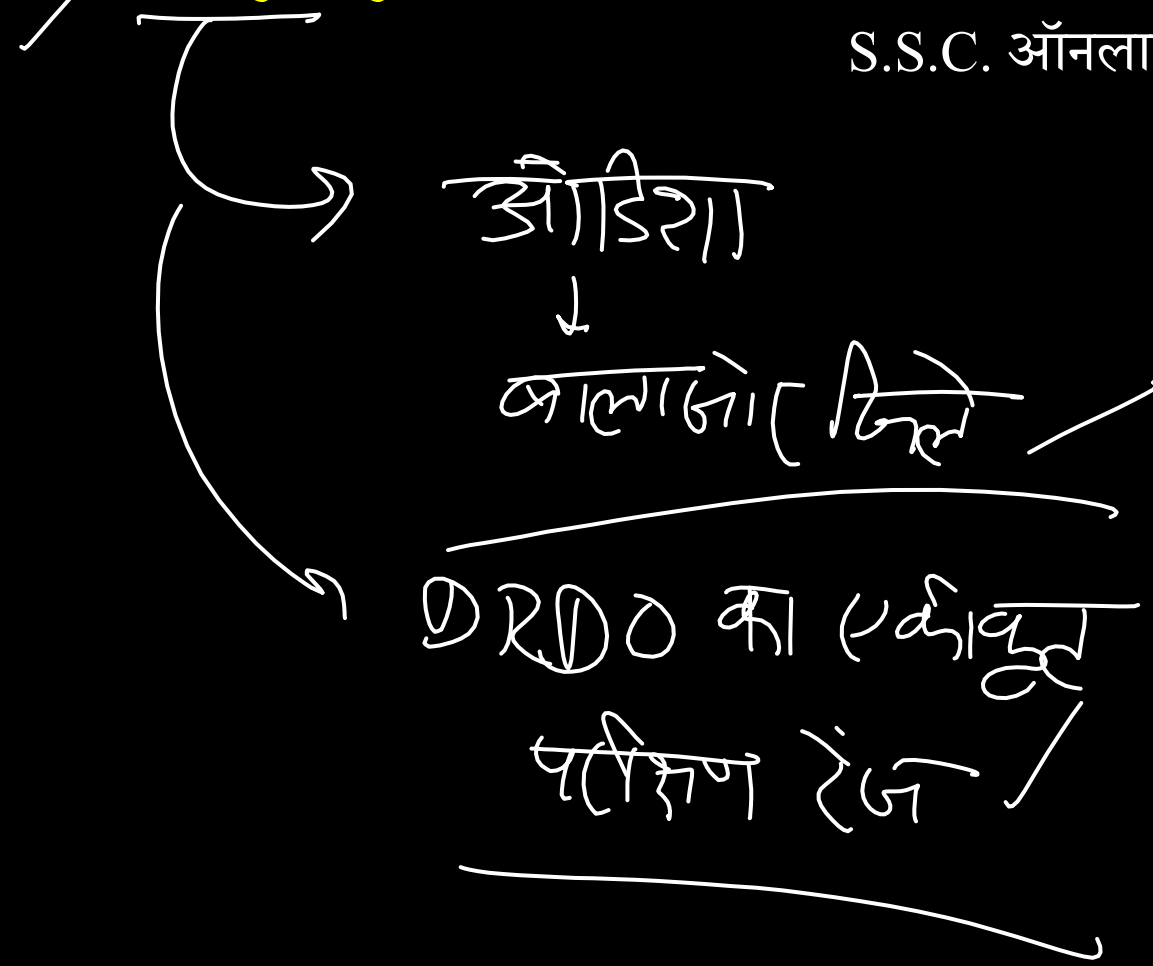 S.S.C. ऑनला
ओडिशा
बालाजोर जिले
DRDO का एकीकृत
परीक्षण रेंज